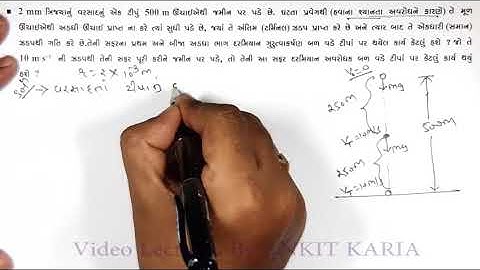 ▪ 2 mm ત્રિજ્યાનું વરસાદનું એક ટીપું 500 m ઊંચાઈએથી જમીન પર પડે છે. ઘટતા પ્રવેગથી (હવાના શ્યાનતા અવરોધને કારણે) તે મૂળ
ઊંચાઈથી અડધી ઊંચાઈ પ્રાપ્ત ના કરે ત્યાં સુધી પડે છે, જ્યાં તે અંતિમ (ટર્મિનલ) ઝડપ પ્રાપ્ત કરે છે અને ત્યાર બાદ તે એકધારી (સમાન)
ઝડપથી ગતિ કરે છે.તેની સફરના પ્રથમ અને બીજા અડધા ભાગ દરમિયાન ગુરુત્વાકર્ષણ બળ વડે ટીપાં પર થયેલ કાર્ય કેટલું હશે ? જો તે
10 m s⁻¹ ની ઝડપથી તેની સફર પૂરી કરીને જમીન પર પડે, તો તેની આ સફર દરમિયાન અવરોધક બળ વડે ટીપાં પર થયેલ કાર્ય કેટલું થયું
હશે ?
r = 2 × 10⁻³ m,
વરસાદનાં ટીપાનું
V₀ = 0
250m
mg
V_T = 10 m/s
500m
250m
mg
V_T = 10 m/s
Video Lecture By ANKIT KARIA